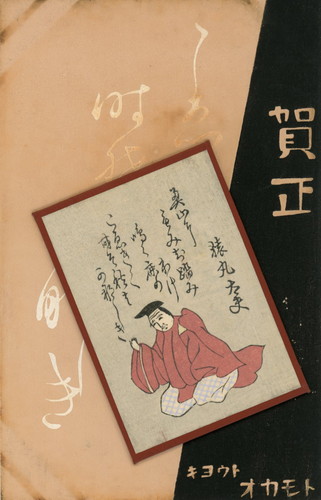 賀正
猿丸大夫
奥山に
もみち踏み
わけ
鳴く鹿の
こゑきく
時そ秋は
可那しき
キヨウト
オカモト